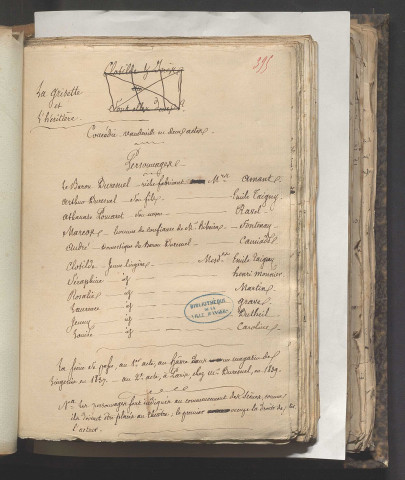 395
La Grisette
et
l'héritière.
Clotilde &
Comédie vaudeville en deux actes
Personnages
Le Baron Duresnel riche fabricant Mrs Amant
Arthur Duresnel son fils Emile Taigny
Athanase son Ravel
homme de confiance de Mr Fontenay
André domestique du Baron Duresnel Camiade
Clotilde Jeune lingère Mesdes Emile Taigny
Séraphine id henri monnier
Rosalie id Martin
Laurence id grave
Jenny id
Louise id Caroline
BIBLIOTHÈQUE
DE LA
VILLE D'
La scène se passe, au 1er acte, au havre dans un magasin de
lingerie en 1837. au 2e acte, à Paris, chez Mr Duresnel, en 1839.
Na Les personnages sont indiqués au commencement des scènes, comme
ils doivent être placés au théâtre; le premier occupe la droite de
l'acteur.